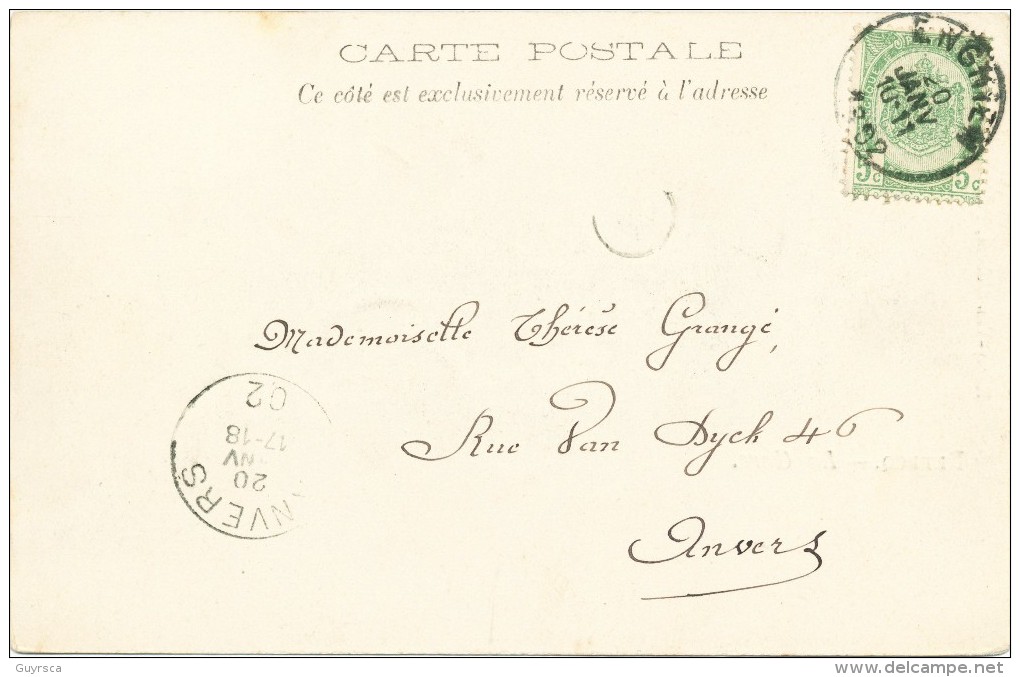 CARTE POSTALE
Ce côté est exclusivement réservé à l'adresse
ENGHIEN
20
JANV
10-11
1902
5c 5c
Mademoiselle Thérèse Grangé,
Rue Van Dyck 46
Anvers
ANVERS
20
NV
17-18
02
Guyrsca
www.delcampe.net